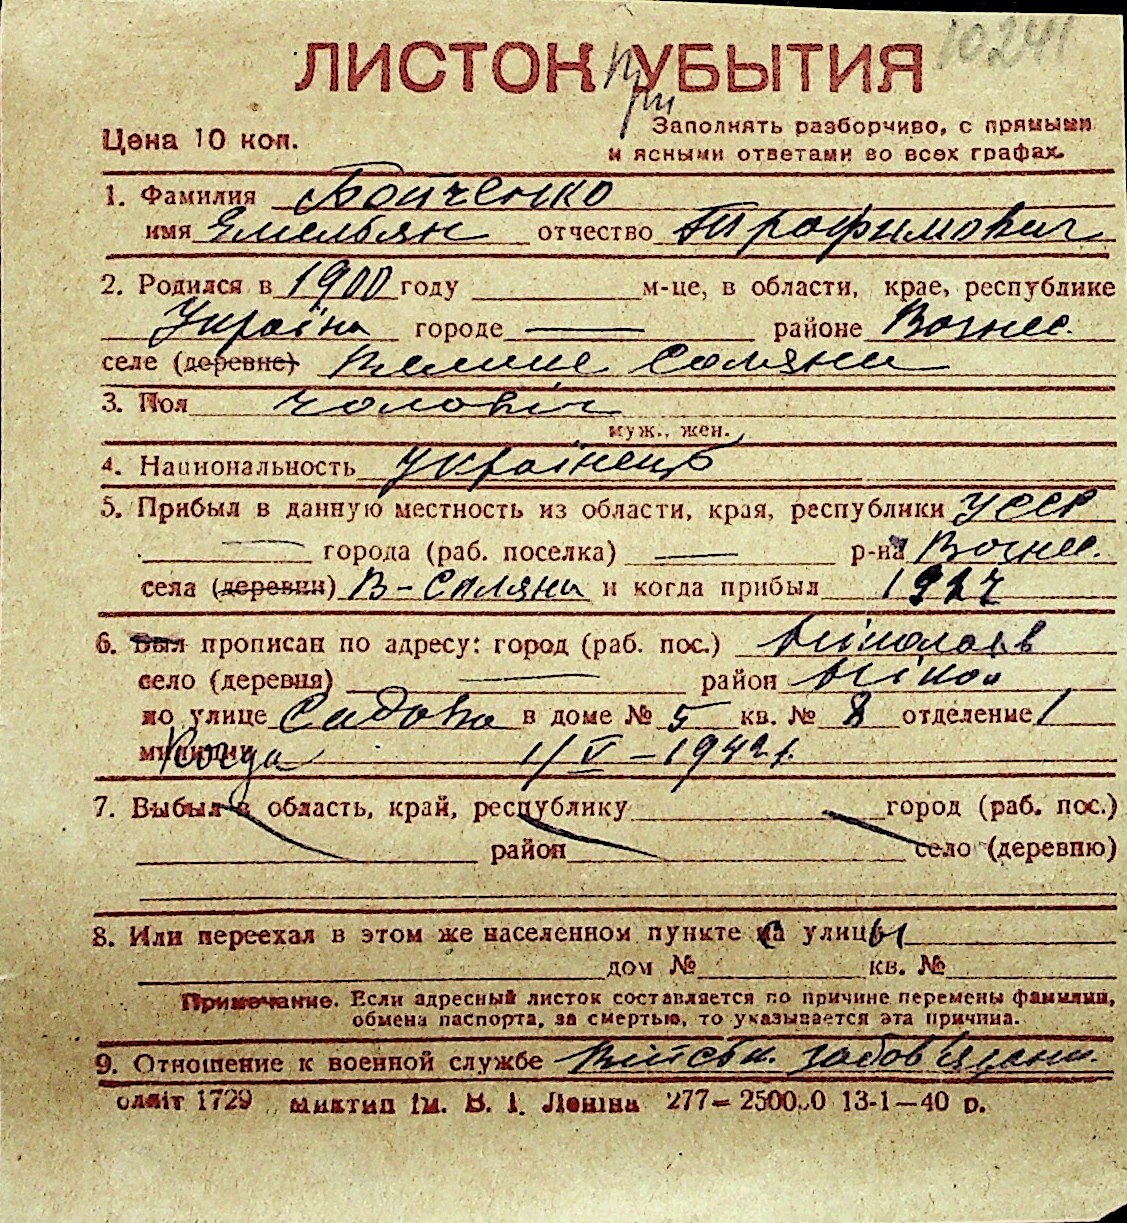 10241
ЛИСТОК при УБЫТИЯ
Цена 10 коп.
Заполнять разборчиво, с прямыми
и ясными ответами во всех графах.
1. Фамилия Бойченко
имя Емельян отчество Трофимович
2. Родился в 1900 году м-це, в области, крае, республике
Україна городе — районе Вознес.
селе (деревне) Велике Соляни
3. Пол чоловіч
муж., жен.
4. Национальность Українець
5. Прибыл в данную местность из области, края, республики УССР
— города (раб. поселка) — р-на Вознес.
села (деревни) В-Соляни и когда прибыл 1927
6. Был прописан по адресу: город (раб. пос.) Міколаїв
село (деревня) — район Мікол
по улице Садова в доме № 5 кв. № 8 отделение 1
милиции Когда 1/V – 1942 г.
7. Выбыл в область, край, республику город (раб. пос.)
район село (деревню)
8. Или переехал в этом же населенном пункте с улицы
дом № кв. №
Примечание. Если адресный листок составляется по причине перемены фамилии,
обмена паспорта, за смертью, то указывается эта причина.
9. Отношение к военной службе Військ. забов'язан.
лліт 1729 Миктип ім. В. І. Леніна 277—2500 0 13-1—40 р.